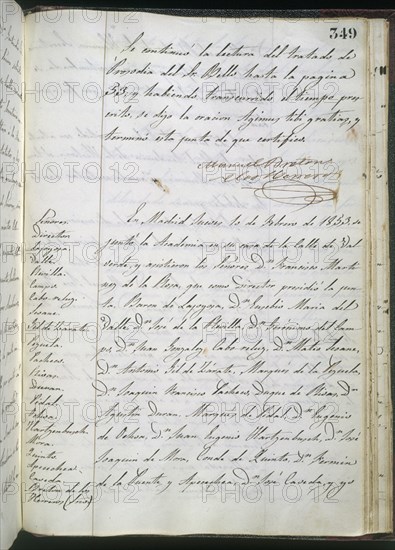 349
Se continuó la lectura del tratado de
Prosodia del Sr. Bello hasta la pagina
53, y habiendo transcurrido el tiempo pres-
crito, se dijo la oracion Agimus tibi gratias, y
terminó esta junta de que certifico.
Manuel Breton
de los Herreros
Señores
Director
Lapoyra
Valle
Revilla
Campo
Cabo-reluz
Seoane
Gil de Zárate
Pezuela
Pacheco
Rivas
Duran
Pidal
Ochoa
Hartzenbusch
Mora
Quinto
Apecechea
Caveda
Breton de los
Herreros (Srio)
En Madrid Jueves 10 de Febrero de 1853. se
juntó la Academia en su casa de la Calle de Val-
verde, y asistieron los Señores Dn. Francisco Marti-
nez de la Rosa, que como Director presidió la jun-
ta, Baron de Dn. Eusebio Maria del
Valle, Dn. José de la Revilla, Dn. Gerónimo del Cam-
po, Dn. Juan Gonzalez Cabo-reluz, Dn. Mateo Seoane,
Dn. Antonio Gil de Zárate, Marques de la Pezuela,
Dn. Joaquin Francisco Pacheco, Duque de Rivas, Dn.
Agustin Duran, Marques de Pidal, Dn. Eugenio
de Ochoa, Dn. Juan Eugenio Hartzenbusch, Dn. José
Joaquin de Mora, Conde de Quinto, Dn. Fermin
de la Puente y Apecechea, Dn. José Caveda, y yo